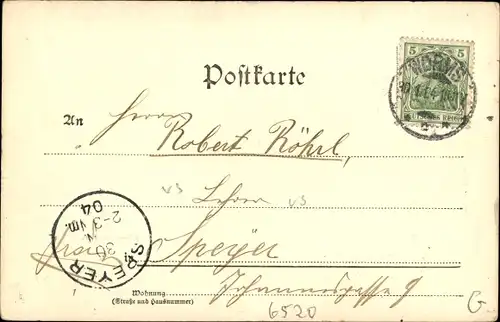 5
WORMS
DEUTSCHES REICH
Postkarte
An
Herrn
Robert Röhrl,
vs Lehrer vs
SPEYER
30
2-3 Nm.
04
Speyer
Johannesgasse 9
Wohnung
(Straße und Hausnummer)
6520
G